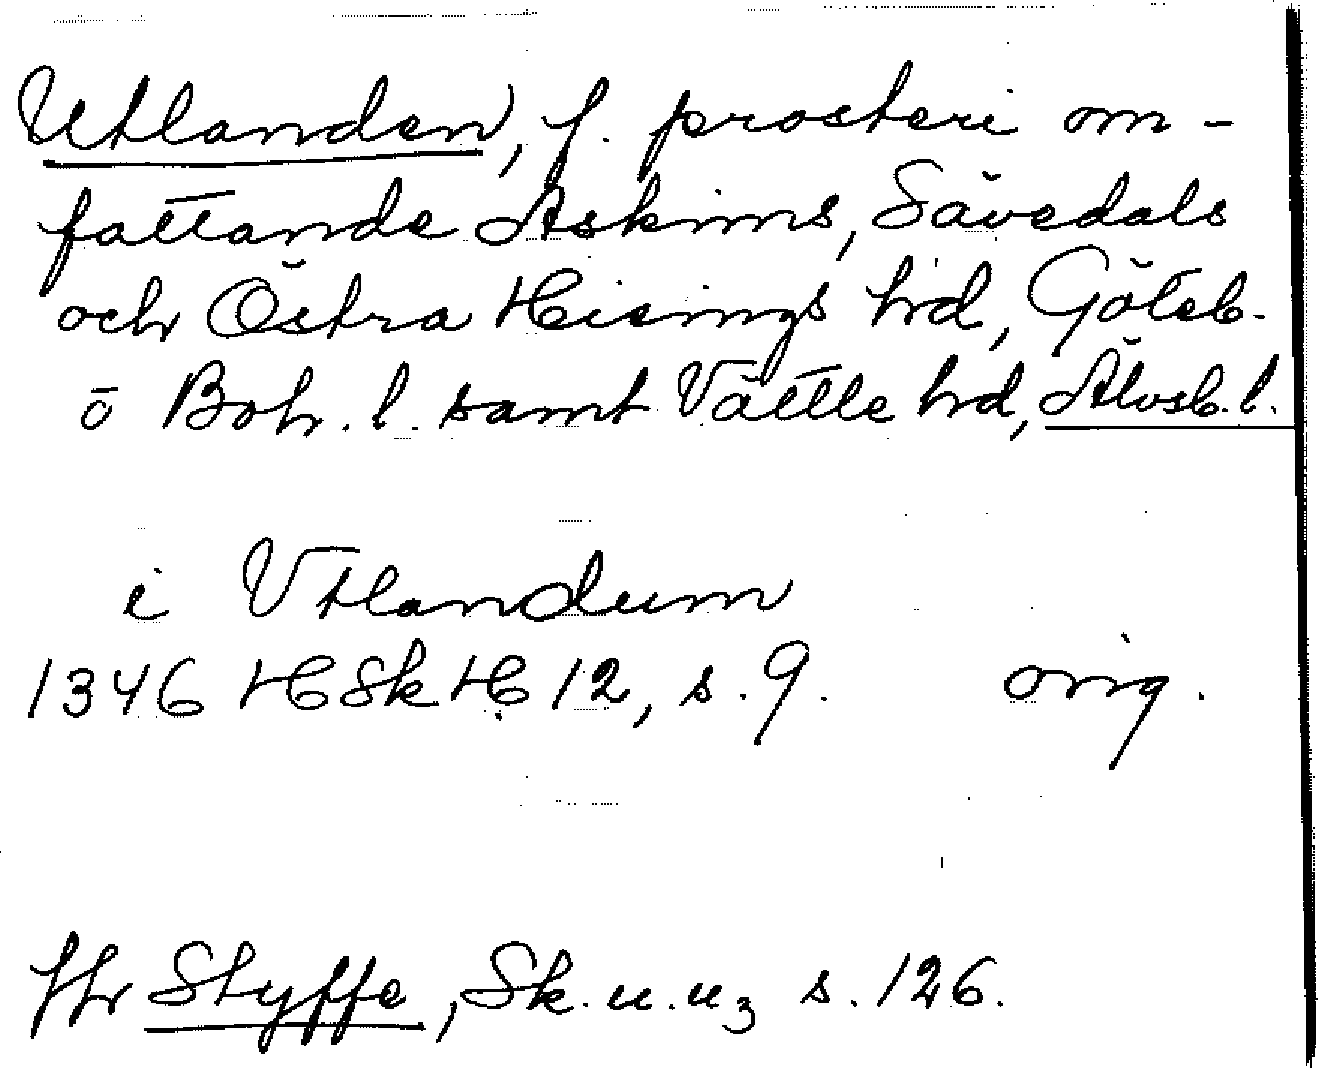 Utlanden, f. prosteri om-
fattande Askims, Sävedals
och Östra Hisings hrd, Göteb.
o Boh. l. samt Vättle hrd, Älvsb. l.
i Vtlandum
1346 HSkH 12, s. 9. orig.
Jfr Styffe, Sk. u. u₃ s. 126.